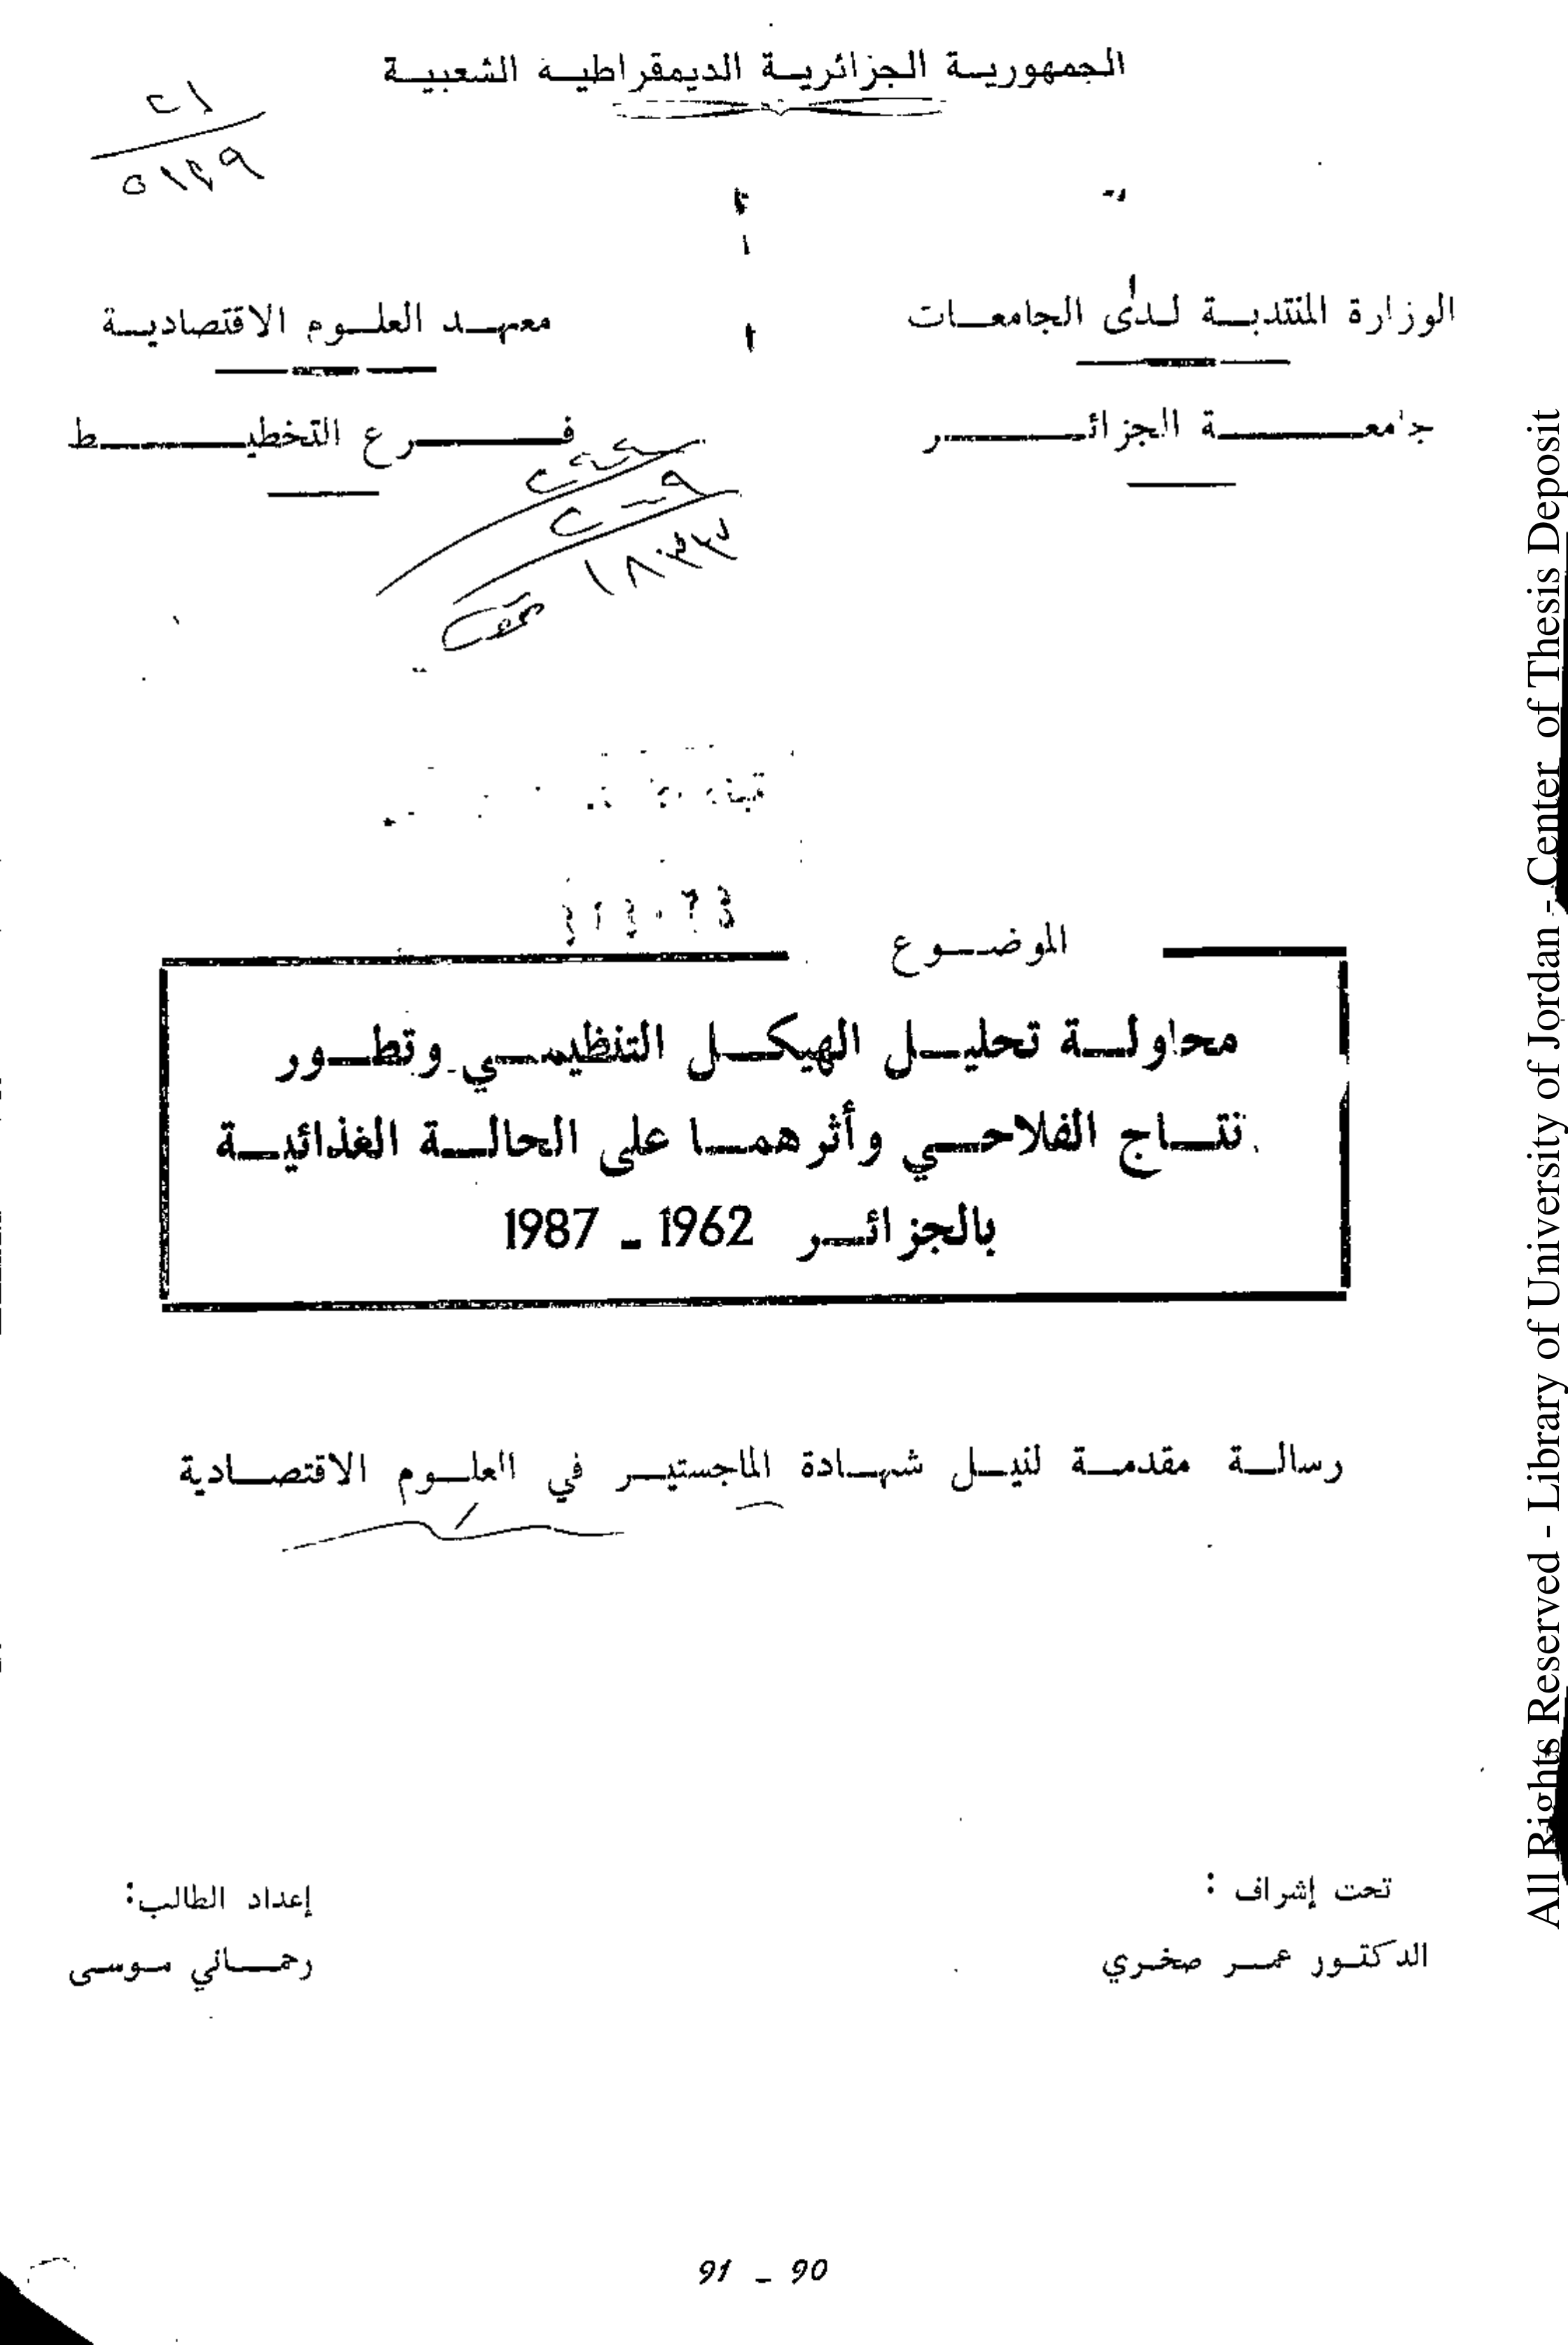 الجمهورية الجزائرية الديمقراطية الشعبية
الوزارة المنتدبة لدى الجامعات
معهد العلوم الاقتصادية
جامعة الجزائر
فرع التخطيط
الموضوع
محاولة تحليل الهيكل التنظيمي وتطور
نتاج الفلاحي وأثرهما على الحالة الغذائية
بالجزائر 1962 - 1987
رسالة مقدمة لنيل شهادة الماجستير في العلوم الاقتصادية
تحت إشراف :
إعداد الطالب:
الدكتور عمر صخري
رحماني موسى
90 - 91
All Rights Reserved - Library of University of Jordan - Center of Thesis Deposit